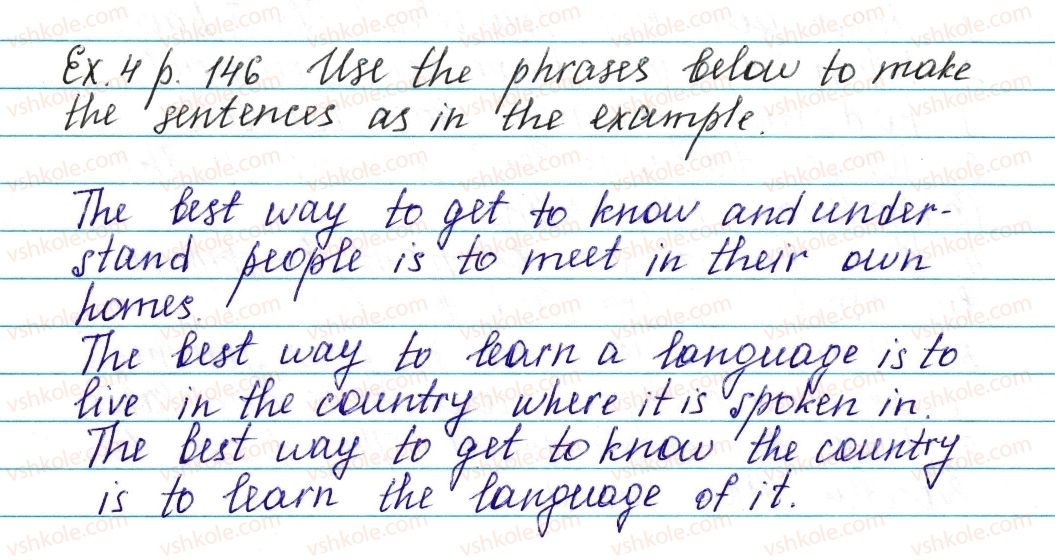 Ex. 4 p. 146 Use the phrases below to make
the sentences as in the example.
The best way to get to know and under-
stand people is to meet in their own
homes.
The best way to learn a language is to
live in the country where it is spoken in.
The best way to get to know the country
is to learn the language of it.